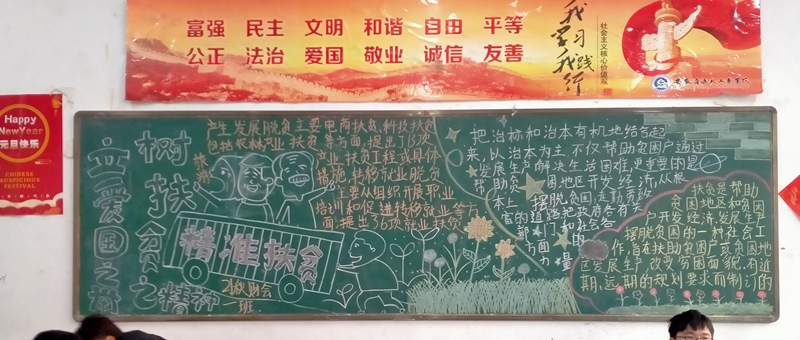 富强 民主 文明 和谐 自由 平等
公正 法治 爱国 敬业 诚信 友善
我学习
我践行
社会主义核心价值观
Happy
New Year
元旦快乐
CHINESE
AUSPICIOUS
FESTIVAL
立爱国之
树扶贫之精神
产生发展脱贫主要电商扶贫,科技扶贫
包括农林产业扶贫 等方面,提出了13项
旅游
产业扶贫工程或具体
措施,转移就业脱贫
主要从组织开展职业
培训和促进转移就业等方
面,提出了6项就业扶贫
精准扶贫
财会
一班
把治标和治本有机地结合起
来,以治本为主 不仅帮助贫困户通过
发展生产解决生活困难,更重要的是
帮助贫困地区开发经济,从根
本上摆脱贫困,走
官的道路
把政府
和社会
方面
力量
扶贫是帮助
贫困地区和贫困
户开发经济,发展生产
摆脱贫困的一种社会工
作,旨在扶助贫困户或贫困地
区发展生产,改变穷困面貌,有近
期,远期的规划要求而制订的